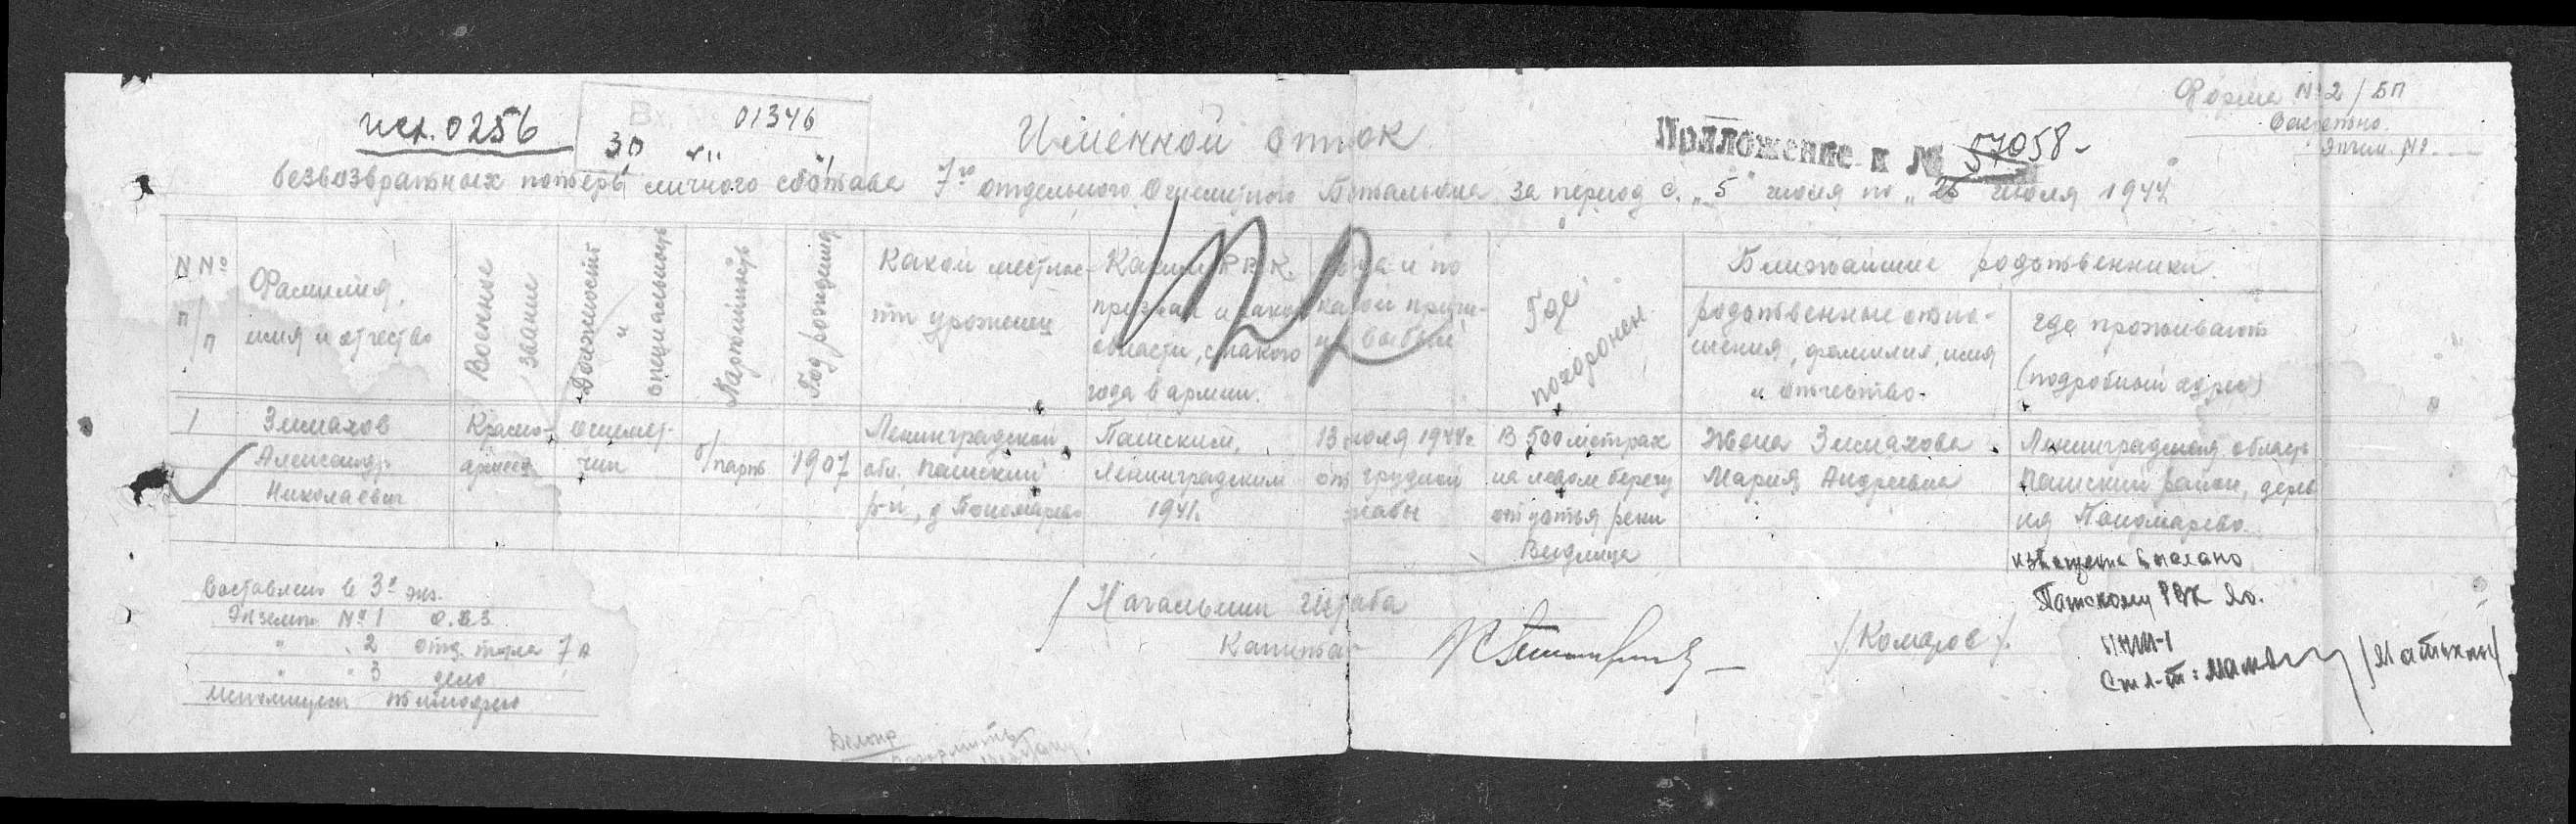 Форма № 2/БП
Секретно.
исх. 0256
Вх. № 01346
30
Именной список
Приложение к № 57058
безвозвратных потерь личного состава 7го отдельного Огнеметного Батальона за период с „5" июля по „25" июля 1944
N Nº п/п
Фамилия, имя и отчество
Военное звание
Должность и специальность
Партийность
Год рождения
Какой местности уроженец
Каким РВК призван и какой области, с какого года в армии.
Когда и по какой причине выбыл
Где похоронен
Ближайшие родственники.
родственные отношения, фамилия, имя и отчество.
где проживают (подробный адрес)
1
Зимахов Александр Николаевич
Красноармеец
огнеметчик
б/парт
1907
Ленинградской обл, Пашский р-н, д Пономарево
Пашским, Ленинградским 1941.
13 июля 1944г.
В 500 метрах на левом берегу от устья реки Видлица
Жена Зимахова Мария Андреевна
Ленинградская область Пашский район, деревня Пономарево.
извещение выслано
Пашскому РВК Ло.
Составлено в 3х экз.
Экземпл № 1
" 2 отд. тыла 7 А
" 3 дело
Начальник штаба
Капитан
/Комаров/.